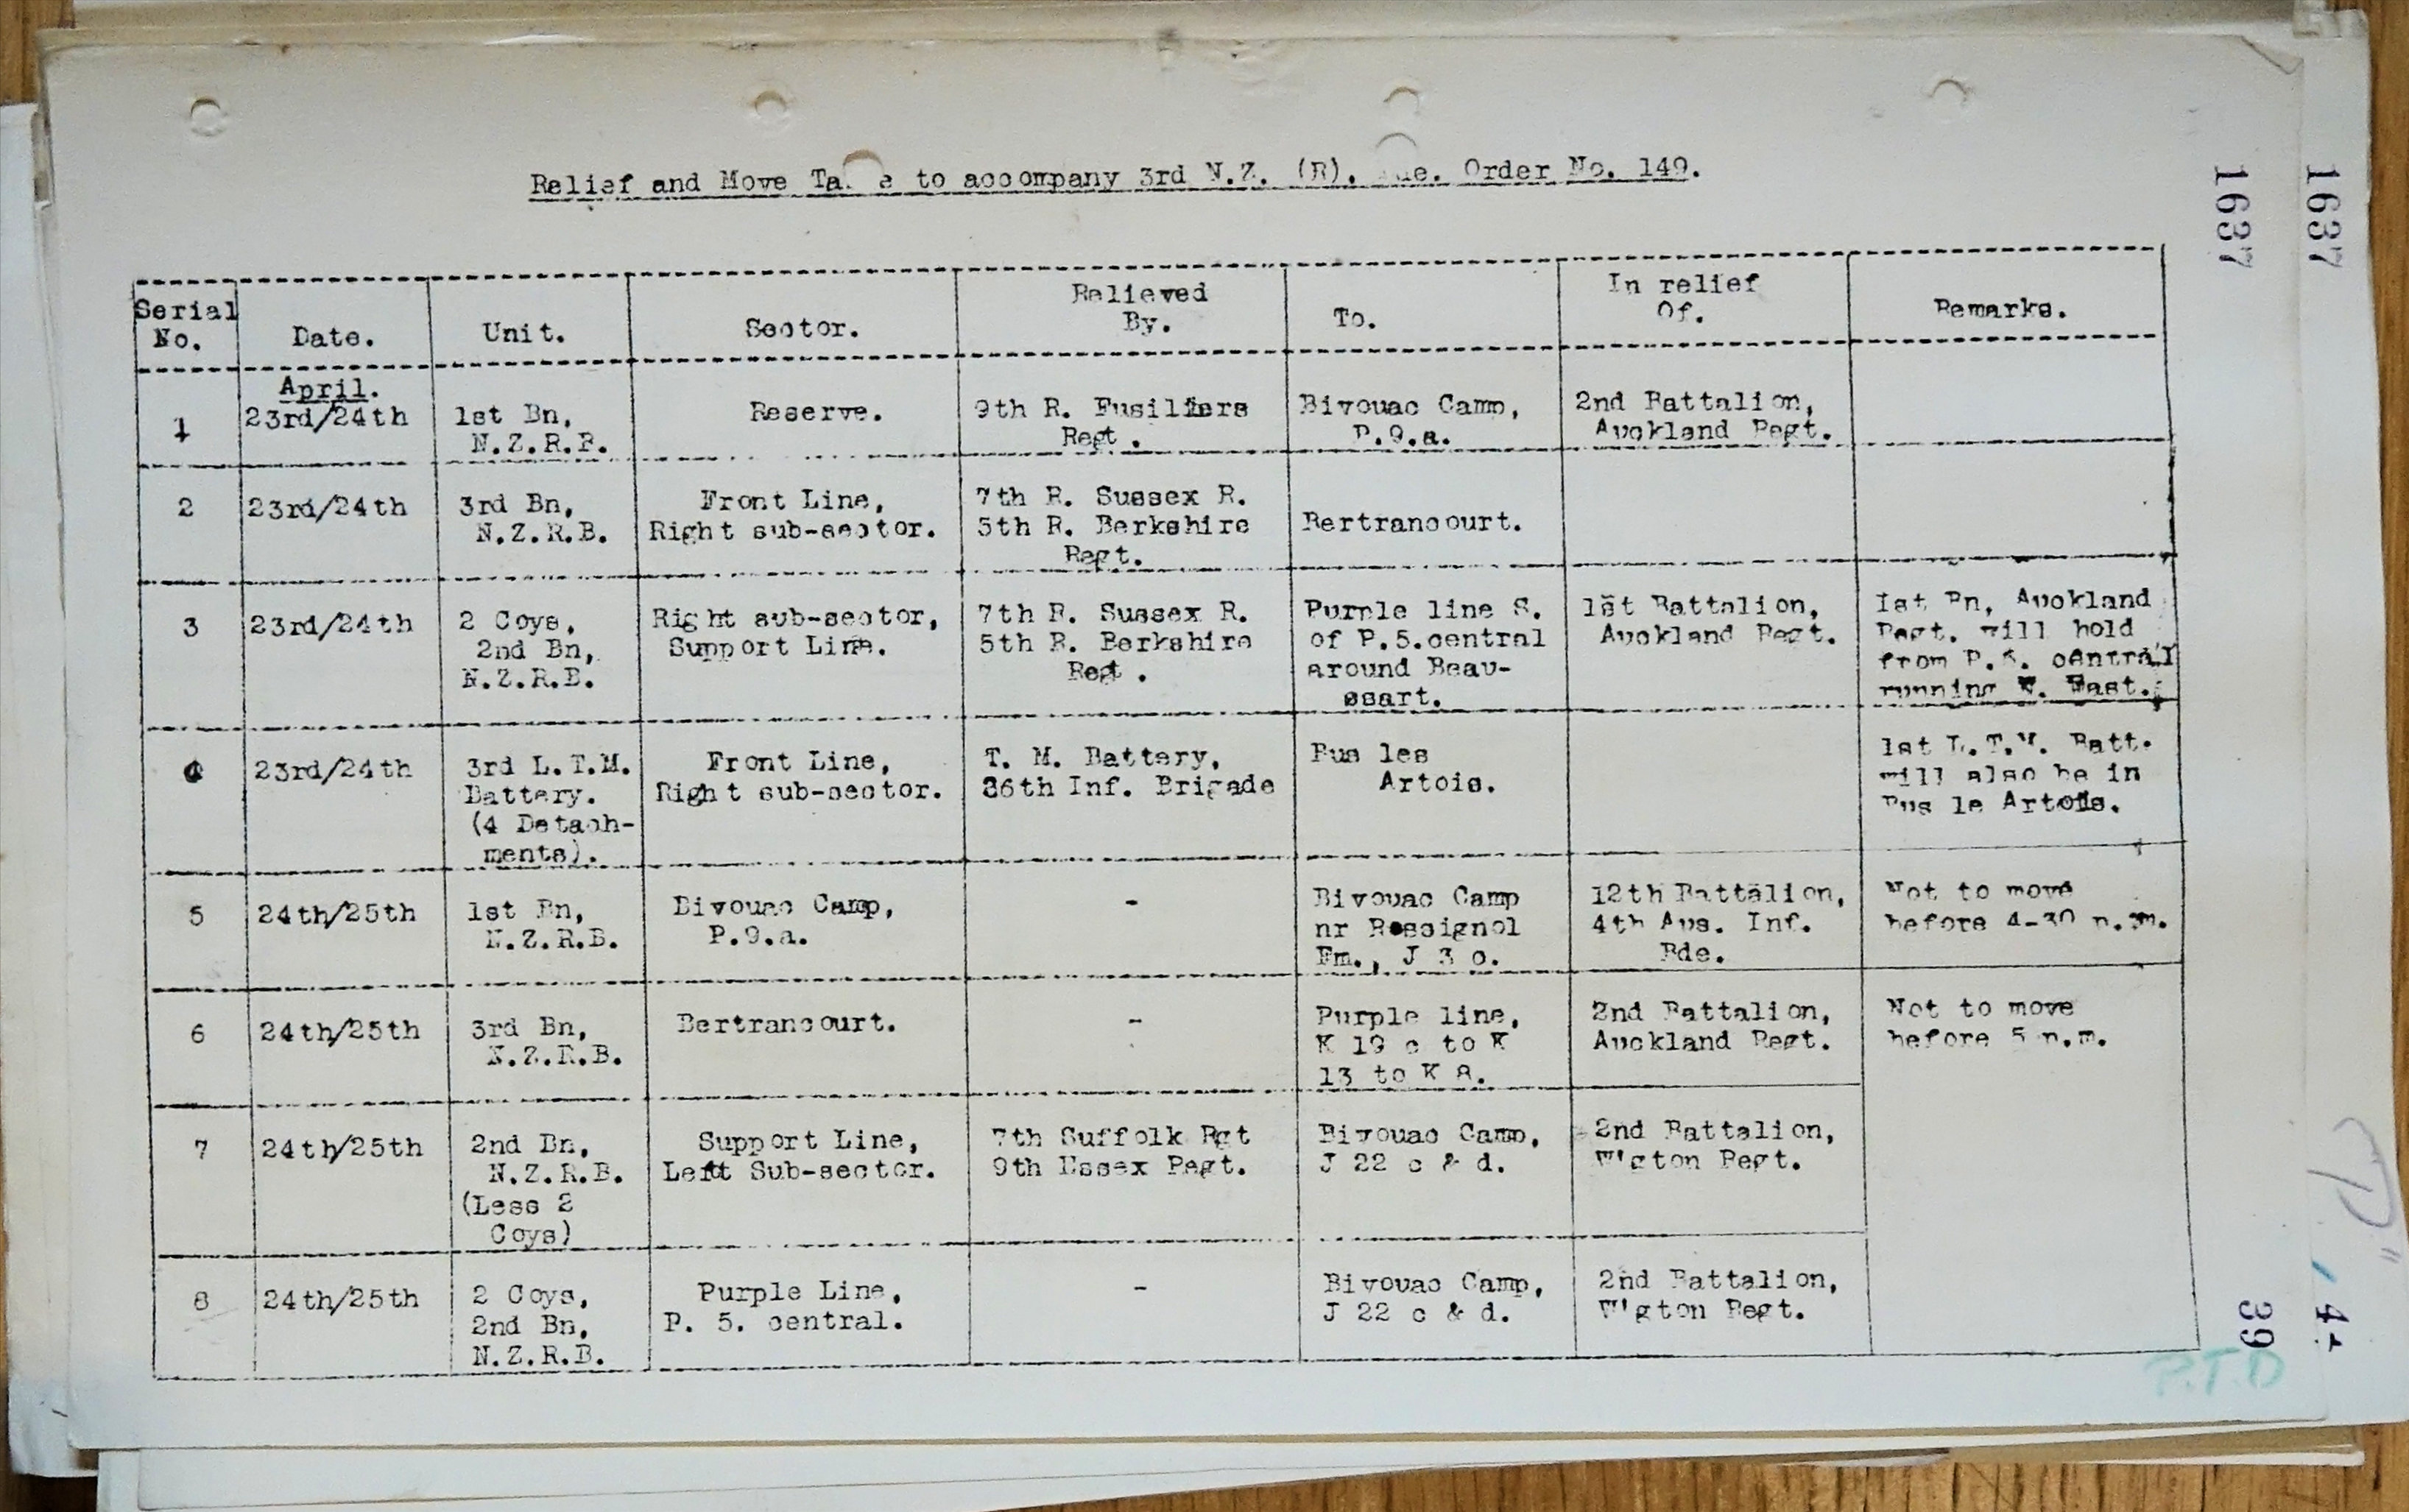 Relief and Move Ta e to accompany 3rd N.Z. (R). de. Order No. 149.
Serial No. Date. Unit. Sector. Relieved By. To. In relief Of. Remarks.
April.
1 23rd/24th 1st Bn, Reserve. 9th R. Fusiliers Bivouac Camp, 2nd Battalion,
N.Z.R.B. Regt. P.9.a. Auckland Regt.
2 23rd/24th 3rd Bn, Front Line, 7th R. Sussex R.
N.Z.R.B. Right sub-sector. 5th R. Berkshire Bertrancourt.
Regt.
3 23rd/24th 2 Coys, Right sub-sector, 7th R. Sussex R. Purple line S. 1st Battalion, 1st Bn, Auckland
2nd Bn, Support Line. 5th R. Berkshire of P.5.central Auckland Regt. Regt. will hold
N.Z.R.B. Regt. around Beau- from P.5. central
ssart. running N. East.
4 23rd/24th 3rd L.T.M. Front Line, T. M. Battery, Bus les 1st L.T.M. Batt.
Battery. Right sub-sector. 36th Inf. Brigade Artois. will also be in
(4 Detach- Bus le Artois.
ments).
5 24th/25th 1st Bn, Bivouac Camp, - Bivouac Camp 12th Battalion, Not to move
N.Z.R.B. P.9.a. nr Rossignol 4th Aus. Inf. before 4-30 p.m.
Fm., J 3 c. Bde.
6 24th/25th 3rd Bn, Bertrancourt. - Purple line, 2nd Battalion, Not to move
N.Z.R.B. K 19 c to K Auckland Regt. before 5 p.m.
13 to K 8.
7 24th/25th 2nd Bn, Support Line, 7th Suffolk Rgt Bivouac Camp, 2nd Battalion,
N.Z.R.B. Left Sub-sector. 9th Essex Regt. J 22 c & d. W'gton Regt.
(Less 2
Coys)
8 24th/25th 2 Coys, Purple Line, - Bivouac Camp, 2nd Battalion,
2nd Bn, P. 5. central. J 22 c & d. W'gton Regt.
N.Z.R.B.
1637
1637
39
P.T.O